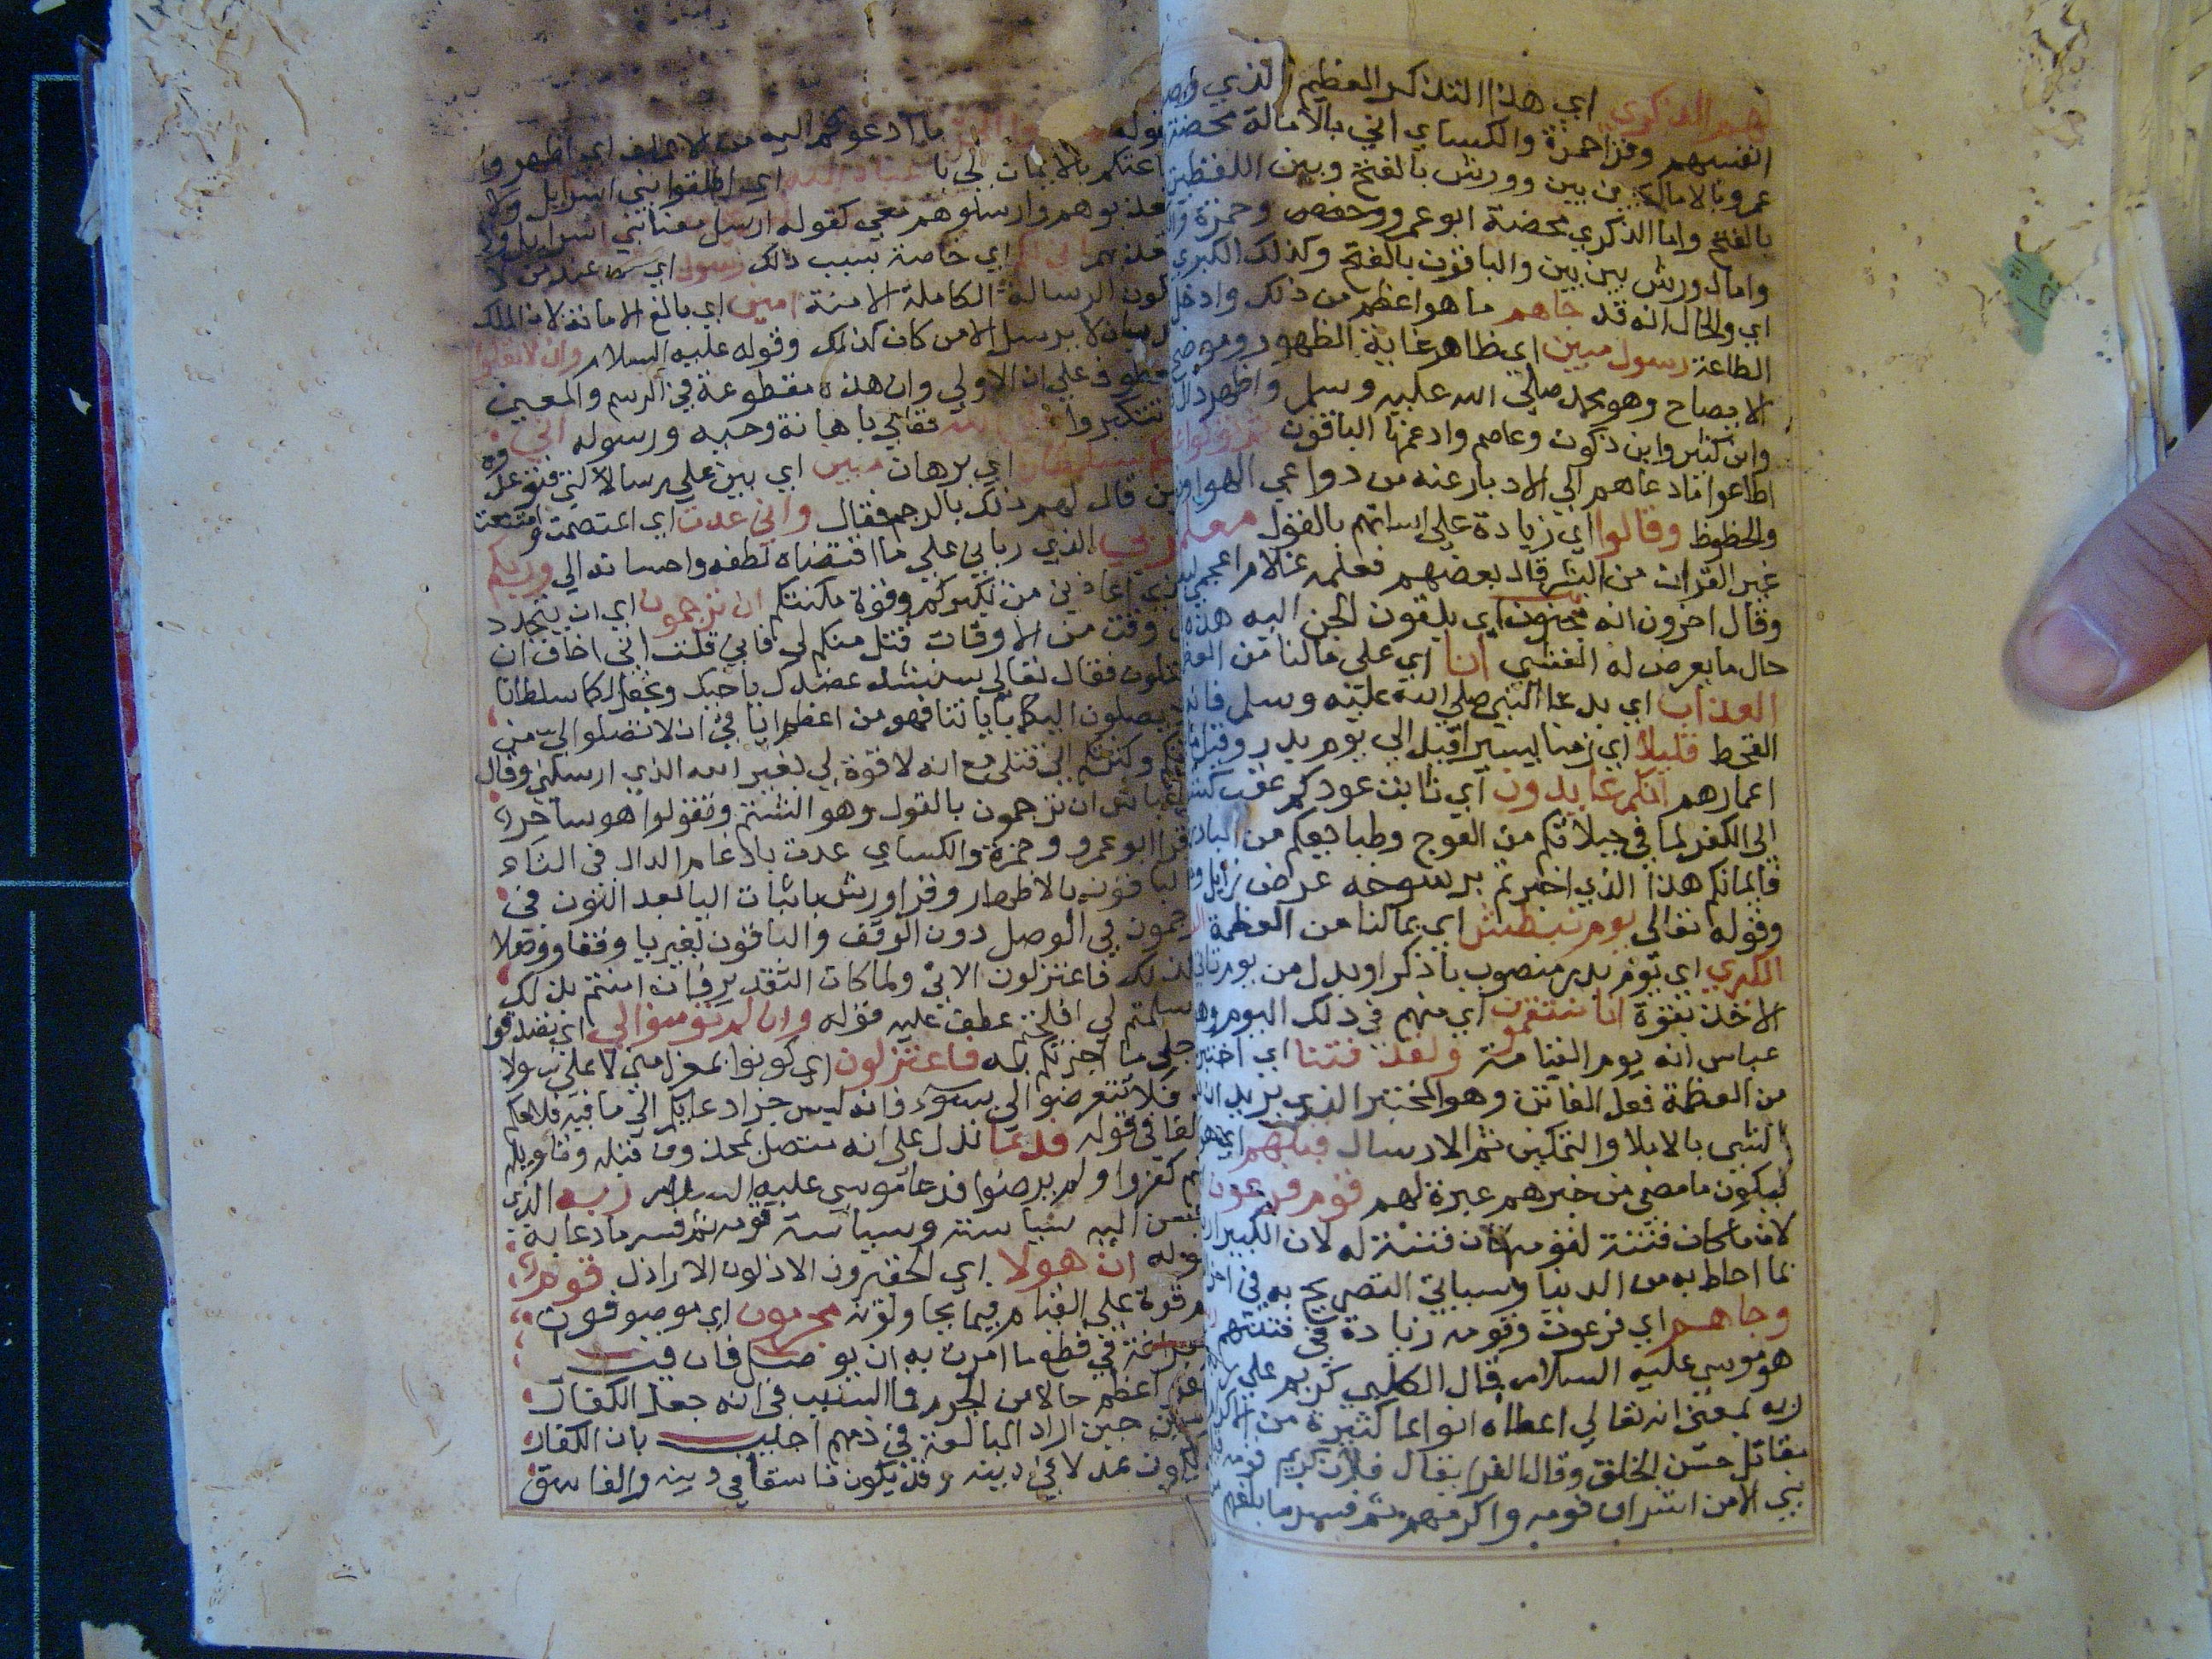 لهم الذكري اي هذا التذكر العظيم الذي وصف
انفسهم وقرا حمزة والكساي اني بالامالة محضة
عمرو بالامالة بين بين وورش بالفتح وبين اللفظين
بالفتح واما الذكري محضة ابو عمرو وحمزة
وامال ورش بين بين والباقون بالفتح وكذلك الكبري
اي والحال انه قد جاهم ما هو اعظم من ذلك وادخل
الطاعة رسول مبين اي ظاهر غاية الظهور وموضح
الايضاح وهو محمد صلي الله عليه وسلم واظهر دال
وابن كثير وابن ذكوان وعاصم وادغمها الباقون ثم تولوا
اطاعوا ما دعاهم الي الادبار عنه من دواعي الهوا
والحظوظ وقالوا اي زيادة علي اساتهم بالقول معلم
غير القران من البشر قال بعضهم فعلمه غلام اعجمي
وقال اخرون انه مجنون اي يلقون الجن اليه هذه
حال ما يعرض له الغشي انا اي علي مالنا من
العذاب اي بدعا النبي صلي الله عليه وسلم فانه
القحط قليلا اي زمنا يسيرا قبل الي يوم بدر وقيل
اعمارهم انكم عايدون اي ثابت عودكم عقب كشفنا
الي الكفر لما في جبلاتكم من العوج وطبايعكم من
فايمانكم هذا الذي اخبرتم برسوخه عرض زايل
وقوله تعالي يوم نبطش اي بمالنا من العظمة
الكبري اي يوم بدر منصوب باذكر او بدل من يوم تاتي
الاخذ بقوة انا منتقمون اي منهم في ذلك اليوم
عباس انه يوم القيامة ولقد فتنا اي اختبرنا
من العظمة فعل الفاتن وهو المختبر الذي يريد ان
الشي بالابلا والتمكين ثم الارسال قبلهم اي
ليكون ما مضي من خبرهم عبرة لهم قوم فرعون
لان ما كان فتنة لقومه كان فتنة له لان الكبير
بما احاط به من الدنيا وسياتي التصريح به في
وجاهم اي فرعون وقومه زيادة في فتنتهم
هو موسي عليه السلام قال الكلبي كريم علي
ربه بمعني انه تعالي اعطاه انواعا كثيرة من
مقاتل حسن الخلق وقال الفرا يقال فلان كريم قومه
نبي الا من اشراف قومه واكرمهم ثم فسر ما بلغهم
بقوله ما ادعوكم اليه من الايمان اي اظهروا
طاعتكم بالايمان لي يا عباد الله اي اطلقوا بني اسرايل ولا
تعذبوهم وارسلوهم معي كقوله ارسل معنا بني اسرايل ولا
تعذبهم اني لكم اي خاصة بسبب ذلك رسول اي من عند من لا
تكون الرسالة الكاملة الا منه امين اي بالغ الامانة لان الملك
الديان لا يرسل الا من كان كذلك وقوله عليه السلام وان لا تعلوا
معطوف علي ان الاولي وان هذه مقطوعة في الرسم والمعني
تتكبروا علي الله تعالي باهانة وحيه ورسوله اني
اتيكم بسلطان اي برهان مبين اي بين علي رسالاتي
حين قال لهم ذلك بالرجم فقال واني عذت اي اعتصمت وامتنعت
بربي الذي رباني علي ما اقتضاه لطفه واحسانه الي وربكم
الذي اعاذني من تكبركم وقوة مكنتكم ان ترجمون اي ان يتجدد
وقت من الاوقات قتل منكم لي فاني قلت اني اخاف ان
يقتلون فقال تعالي سنشد عضدك باخيك ونجعل لكما سلطانا
فلا يصلون اليكما باياتنا فهو من اعظم اياتي ان لا تصلوا الي من
وكثرتكم الي قتلي مع انه لا قوة لي بغير الله الذي ارسلني وقال
ابن عباس ان ترجمون بالقول وهو الشتم وتقولوا هو ساحر
وقرا ابو عمرو وحمزة والكساي عدت بادغام الدال في التاء
والباقون بالاظهار وقرا ورش باثبات اليا بعد النون في
ترجمون في الوصل دون الوقف والباقون بغير يا وقفا ووصلا
كذلك فاعتزلون الاتي ولما كان التقدير فان امنتم بذلك
وسلمتم لي افلحتم عطف عليه قوله وان لم تومنوا لي اي تصدقوا
لاجلي ما اخبرتكم به فاعتزلون اي كونوا بمعزل مني لا علي ولا
لي فلا تتعرضوا الي بسوء فانه ليس جزا دعايكم الي ما فيه فلاحكم
الفا في قوله فدعا تدل علي انه متصل بمحذوف قبله وتاويله
انهم كفروا ولم يومنوا فدعا موسي عليه السلام ربه الذي
احسن اليه سياسته وسياسة قومه ثم فسر ما دعا به
بقوله ان هولا اي الحقيرون الاذلون الاراذل قوم
لهم قوة علي القيام فيما يحاولونه مجرمون اي موصوفون
بالعراقة في قطع ما امرت به ان يوصل فان قيل
الكفر اعظم حالا من الجرم فما السبب في انه جعل الكفار
مجرمين حين اراد المبالغة في ذمهم اجيب بان الكفار
يكون عدلا في دينه وقد يكون فاسقا في دينه والفاسق